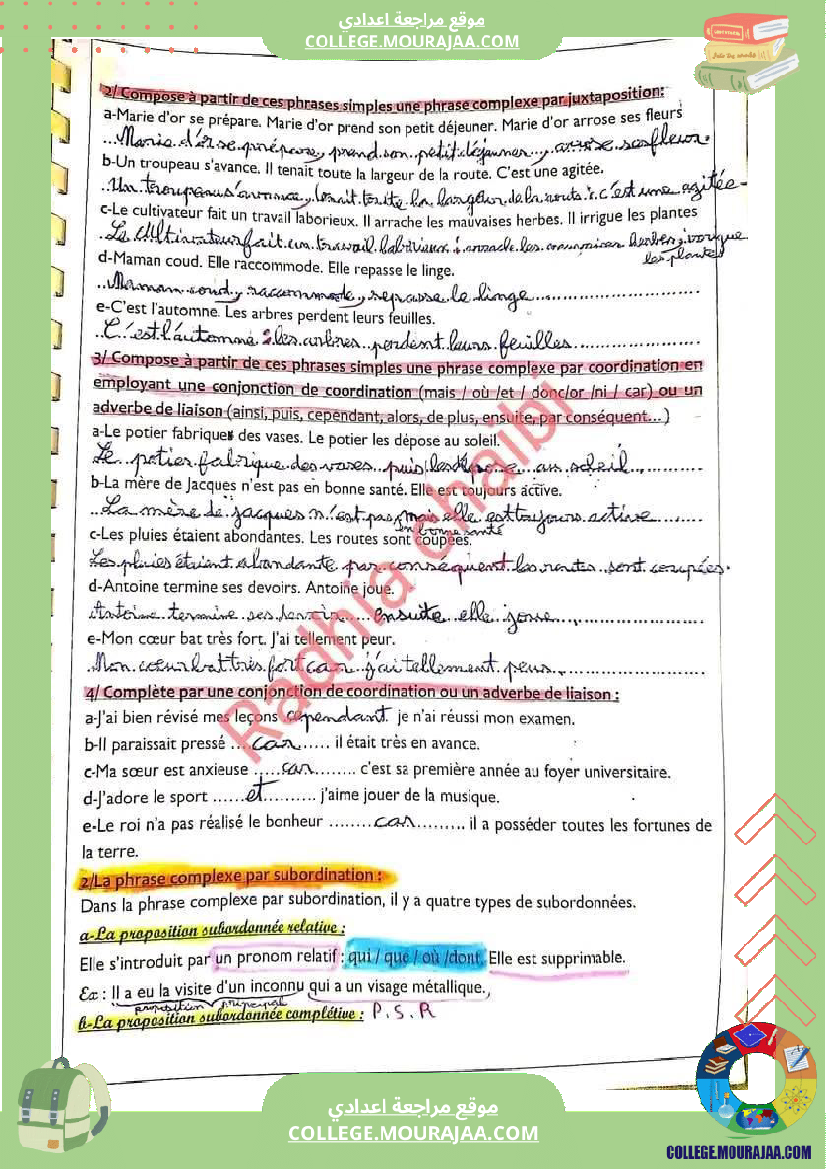 موقع مراجعة اعدادي
COLLEGE.MOURAJAA.COM
2/ Compose à partir de ces phrases simples une phrase complexe par juxtaposition:
a-Marie d'or se prépare. Marie d'or prend son petit déjeuner. Marie d'or arrose ses fleurs
Marie d'or se prépare, prend son petit déjeuner, arrose ses fleur.
b-Un troupeau s'avance. Il tenait toute la largeur de la route. C'est une agitée.
Un troupeau s'avance, tenait toute la largeur de la route : c'est une agitée.
c-Le cultivateur fait un travail laborieux. Il arrache les mauvaises herbes. Il irrigue les plantes
Le cultivateur fait un travail laborieux : arrache les mauvaises herbes ; irrigue
les plantes
d-Maman coud. Elle raccommode. Elle repasse le linge.
Maman coud, raccommode, repasse le linge
e-C'est l'automne. Les arbres perdent leurs feuilles.
C'est l'automne : les arbres perdent leurs feuilles
3/ Compose à partir de ces phrases simples une phrase complexe par coordination en
employant une conjonction de coordination (mais / où /et / donc/or /ni / car) ou un
adverbe de liaison (ainsi, puis, cependant, alors, de plus, ensuite, par conséquent...)
a-Le potier fabrique des vases. Le potier les dépose au soleil.
Le potier fabrique des vases puis les dépose au soleil
b-La mère de Jacques n'est pas en bonne santé. Elle est toujours active.
La mère de jacques n'est pas, mais elle est toujours active
en bonne santé
c-Les pluies étaient abondantes. Les routes sont coupées.
Les pluies étaient abondante par conséquent les routes sont coupées.
d-Antoine termine ses devoirs. Antoine joue.
Antoine termine ses devoir ensuite elle joue
e-Mon cœur bat très fort. J'ai tellement peur.
Mon cœur bat très fort car j'ai tellement peur
4/ Complète par une conjonction de coordination ou un adverbe de liaison :
a-J'ai bien révisé mes leçons cependant je n'ai réussi mon examen.
b-Il paraissait pressé ....car...... il était très en avance.
c-Ma sœur est anxieuse .....car........ c'est sa première année au foyer universitaire.
d-J'adore le sport ......et.......... j'aime jouer de la musique.
e-Le roi n'a pas réalisé le bonheur ........car......... il a posséder toutes les fortunes de
la terre.
2/La phrase complexe par subordination :
Dans la phrase complexe par subordination, il y a quatre types de subordonnées.
a-La proposition subordonnée relative :
Elle s'introduit par un pronom relatif : qui / que / où /dont. Elle est supprimable.
Ex : Il a eu la visite d'un inconnu qui a un visage métallique.
proposition principal
b-La proposition subordonnée complétive : P. S. R
Radhia chaibi
موقع مراجعة اعدادي
COLLEGE.MOURAJAA.COM
COLLEGE.MOURAJAA.COM